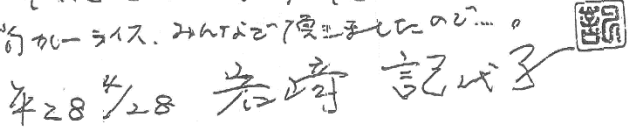 カレーライス、みんなで頂きましたので…。
平28 4/28 岩崎 記代子